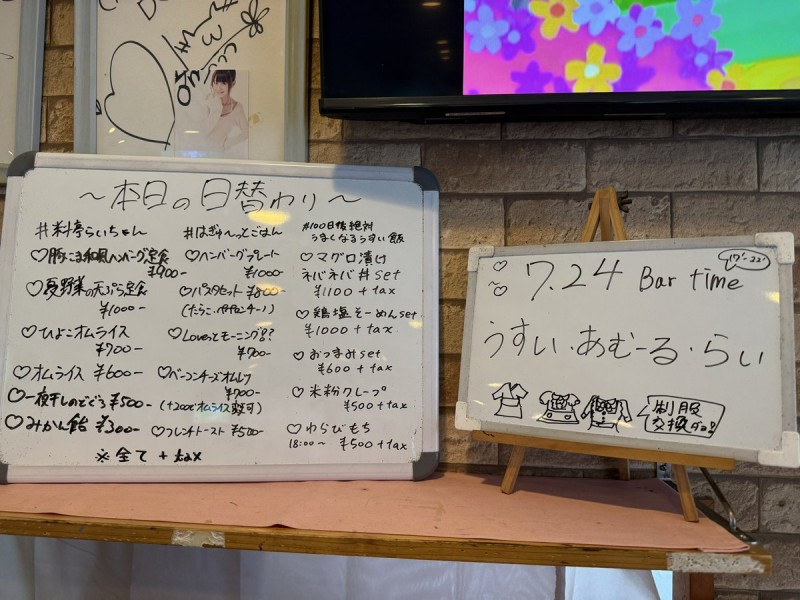 ～本日の日替わり～
#料亭らいちゃん
♡豚こま和風ハンバーグ定食
¥900-
♡夏野菜の天ぷら定食
¥1000-
♡ひよこオムライス
¥700-
♡オムライス ¥600-
♡一夜干しのどぐろ ¥500-
♡みかん飴 ¥300-
#はぎゅーっとごはん
♡ハンバーグプレート
¥1000-
♡パスタセット ¥800-
♡Loveっとモーニング&?
¥700-
♡ベーコンチーズオムレツ
¥700-
(+200でオムライス変更可)
♡フレンチトースト ¥500-
#100日後絶対
うまくなるうすい飯
♡マグロ漬け
ネバネバ丼set
¥1100+tax
♡鶏塩そーめんset
¥1000+tax
♡おつまみset
¥600+tax
♡米粉クレープ
¥500+tax
♡わらびもち
18:00～ ¥500+tax
※全て+tax
♡7.24 Bar time
(17-22)
うすい・あむーる・らい
制服
交換デー!